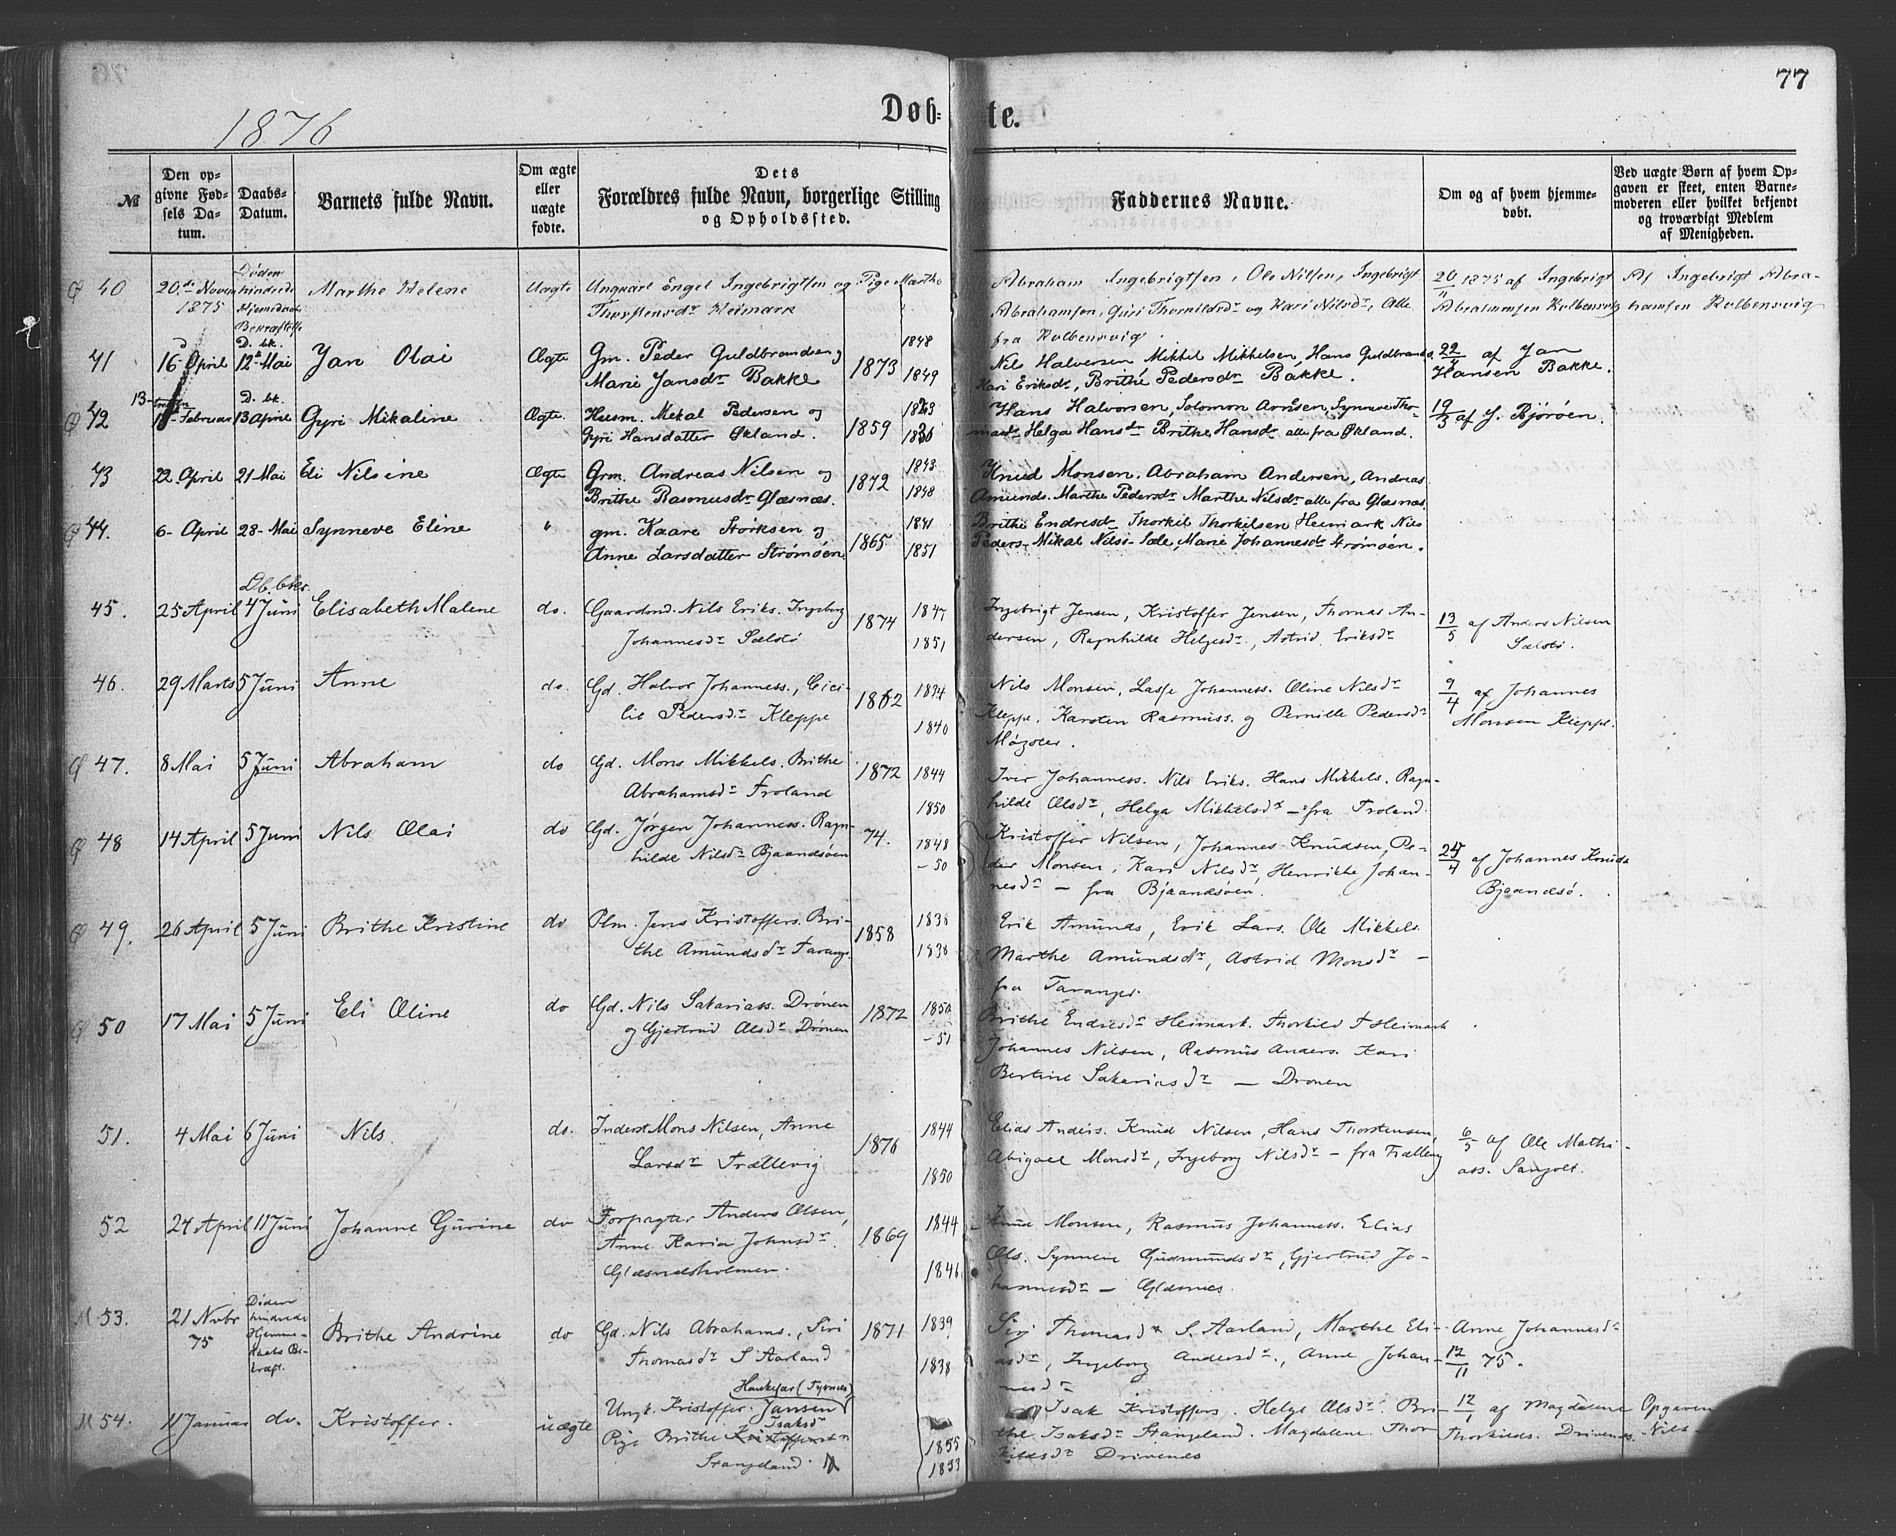 77
1876
Døb-
te.
№
Den op-
givne Fød-
sels Da-
tum.
Daabs-
Datum.
Barnets fulde Navn.
Om ægte
eller
uægte
fødte.
Dets
Forældres fulde Navn, borgerlige Stilling
og Opholdssted.
Faddernes Navne.
Om og af hvem hjemme-
døbt.
Ved uægte Børn af hvem Op-
gaven er skeet, enten Barne-
moderen eller hvilket bekjendt
og troværdigt Medlem
af Menigheden.
40
20de Novem
1875
Døden
hindrede
Hjemedaabs
Bekræftelse
Marthe Helene
Uægte
Ungkarl Engel Ingebrigtsen og Pige Marthe
Thorstensdr Heimark
Abraham Ingebrigtsen, Ole Nilsen, Ingebrigt
Abrahamsen, Guri Thorkildsdr og Kari Nilsdr, Alle
fra Kolbensvig
20/11 1875 af Ingebrigt
Abrahamsen Kolbensvig
Af Ingebrigt Abra-
hamsen Kolbensvig
41
16 April
D. bk.
12te Mai
Jan Olai
Ægte
Gm. Peder Guldbrandsen og
Marie Jansdr Bakke
1873
1848
1849
Nils Halversen, Mikkel Mikkelsen, Hans Guldbrands.
Kari Eriksdr, Brithe Pedersdr Bakke.
22/4 af Jan
Hansen Bakke.
42
13-
Februar
D. bk.
13 April
Gyri Mikaline
Ægte.
Husm. Mekal Pedersen og
Gyri Hansdatter Økland.
1859
Hans Halvorsen, Solomon Arnesen, Synneve Tho-
masdr Helga Hansdr Brithe Hansdr alle fra Økland.
19/3 af J. Bjørøen.
43
22 April
21 Mai
Eli Nilsine
Ægte
Grm. Andreas Nilsen og
Brithe Rasmusdr Glæsnæs.
1872
1843
1848
Knud Monsen, Abraham Andersen, Andreas
Amunds. Marthe Pedersdr Marthe Nilsdr alle fra Glæsnæs
44.
6- April
28- Mai
Synneve Eline
"
gm. Kaare Størksen og
Anne Larsdatter Strømøen
1865
1841
1851
Brithe Endresdr Thorkil Thorkilsen Heimark Nils
Peders- Mikal Nilss- Sæle, Marie Johannesdr Strømøen.
45.
25 April
Db. bkr.
4 Juni
Elisabeth Malene
do.
Gaardmd. Nils Eriks. Ingeborg
Johannesdr Sælstø
1874
1847
1851
Ingebrigt Jensen, Kristoffer Jensen, Thomas An-
dersen, Ragnhilde Helgesdr, Astrid Eriksdr
13/5 af Anders Nilsen
Sælstø.
46.
29 Marts
5 Juni
Anne
do.
Gd. Halvor Johanness., Cici-
lie Pedersdr Kleppe
1862
1834
1840
Nils Monsen, Lasse Johanness. Oline Nilsdr
Kleppe, Karsten Rasmuss. og Pernille Pedersdr
9/4 af Johannes
Monsen Kleppe.
47.
8 Mai
5 Juni
Abraham
do
Gd. Mons Mikkels. Brithe
Abrahamsdr Froland
1872
1844
1850
Iver Johanness. Nils Eriks. Hans Mikkels. Ragn-
hilde Olsdr, Helga Mikkelsdr - fra Froland.
48
14 April
5 Juni
Nils Olai
do
Gd. Jørgen Johanness. Ragn-
hilde Nilsdr Bjaandsøen
74.
1848
-50
Kristoffer Nilsen, Johannes Knudsen, Pe-
der Monsen, Kari Nilsdr, Henrikke Johan-
nesdr - fra Bjaandsøen.
25/4 af Johannes Knuds.
Bjaandsø.
49.
26 April
5 Juni
Brithe Kristine
do
Plm. Jens Kristoffers. Bri-
the Amundsdr Taranger
1858
1838
1838
Erik Amunds, Erik Lars. Ole Mikkels.
Marthe Amundsdr, Astrid Monsdr -
fra Taranger.
50
17 Mai
5 Juni
Eli Oline
do
Gd. Nils Sakariass. Drønen
og Gjertrud Olsdr Drønen
1872
1850
-51
Brithe Endresdr Heimark. Thorkild T Heimark
Johannes Nilsen, Rasmus Anders. Kari
Bertine Sakariasdr - Drønen
51.
4 Mai
6 Juni
Nils.
do.
Inderst Mons Nilsen, Anne
Larsdr Trællevig
1876
1844
1850
Elias Anders. Knud Nilsen, Hans Thorstensen,
Abigael Monsdr, Ingeborg Nilsdr - fra Trællevig
6/5 af Ole Mathi-
ass. Sangolt.
52
24 April
11 Juni
Johanne Gurine
do
Forpagter Anders Olsen,
Anne Karia Johnsdr.
Glæsnesholmen.
1869
1844
1846
Knud Monsen, Rasmus Johanness. Elias
Ols. Synneve Gudmundsdr, Gjertrud Jo-
hannesdr - Glæsnes.
M 53.
21 Nvbr
75
Døden
hindrede
Hjemme-
daabs Be-
kræft.
Brithe Andrine
do
Gd. Nils Abrahams., Siri
Thomasdr S Aarland
1871
1839
1838
Siri Thomasdr S. Aarland, Marthe Eli-
asdr, Ingeborg Andersdr., Anne Johan-
nesdr
Anne Johannesdr
75.
M 54.
11 Januar
do.
Kristoffer.
uægte
Ungk. Kristoffer Jansen
Isaksdr
Pige Brithe
Stangeland.
1855
1853
Isak Kristoffers. Helge Olsdr. Bri-
the Isaksdr Stangeland. Magdalene Thor
kildsdr Drivenes
12/1 af Magdalene
Thorkilds. Drivenes.
Opgaven
Nils